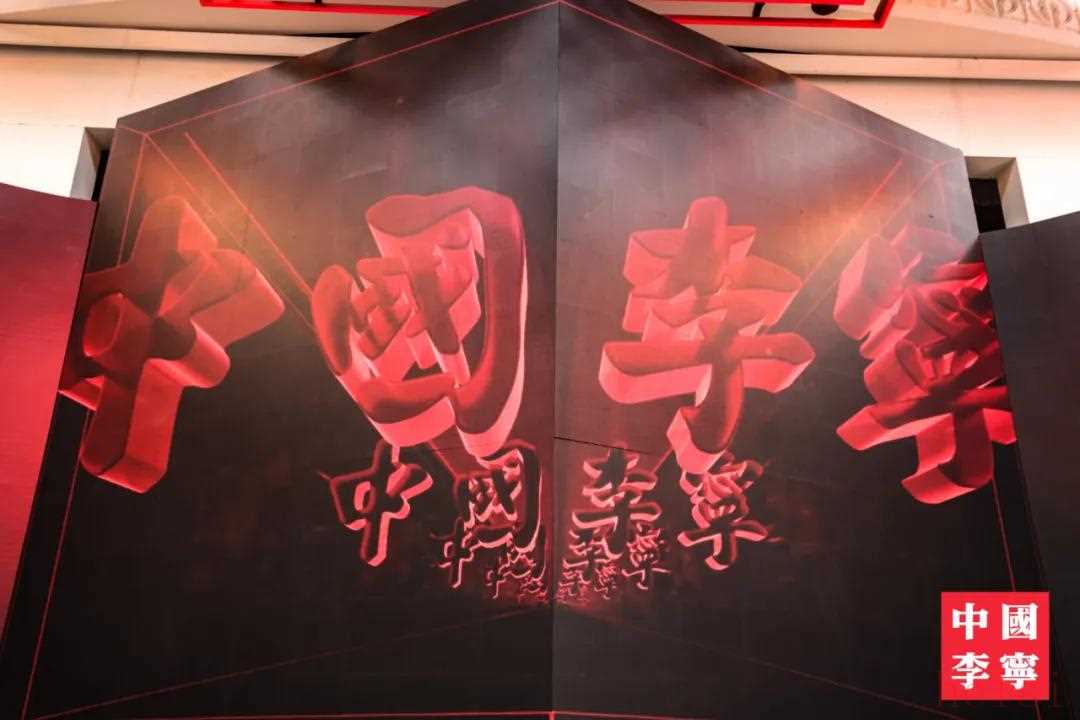 中國李寧
中國李寧
中國李寧
中國
李寧